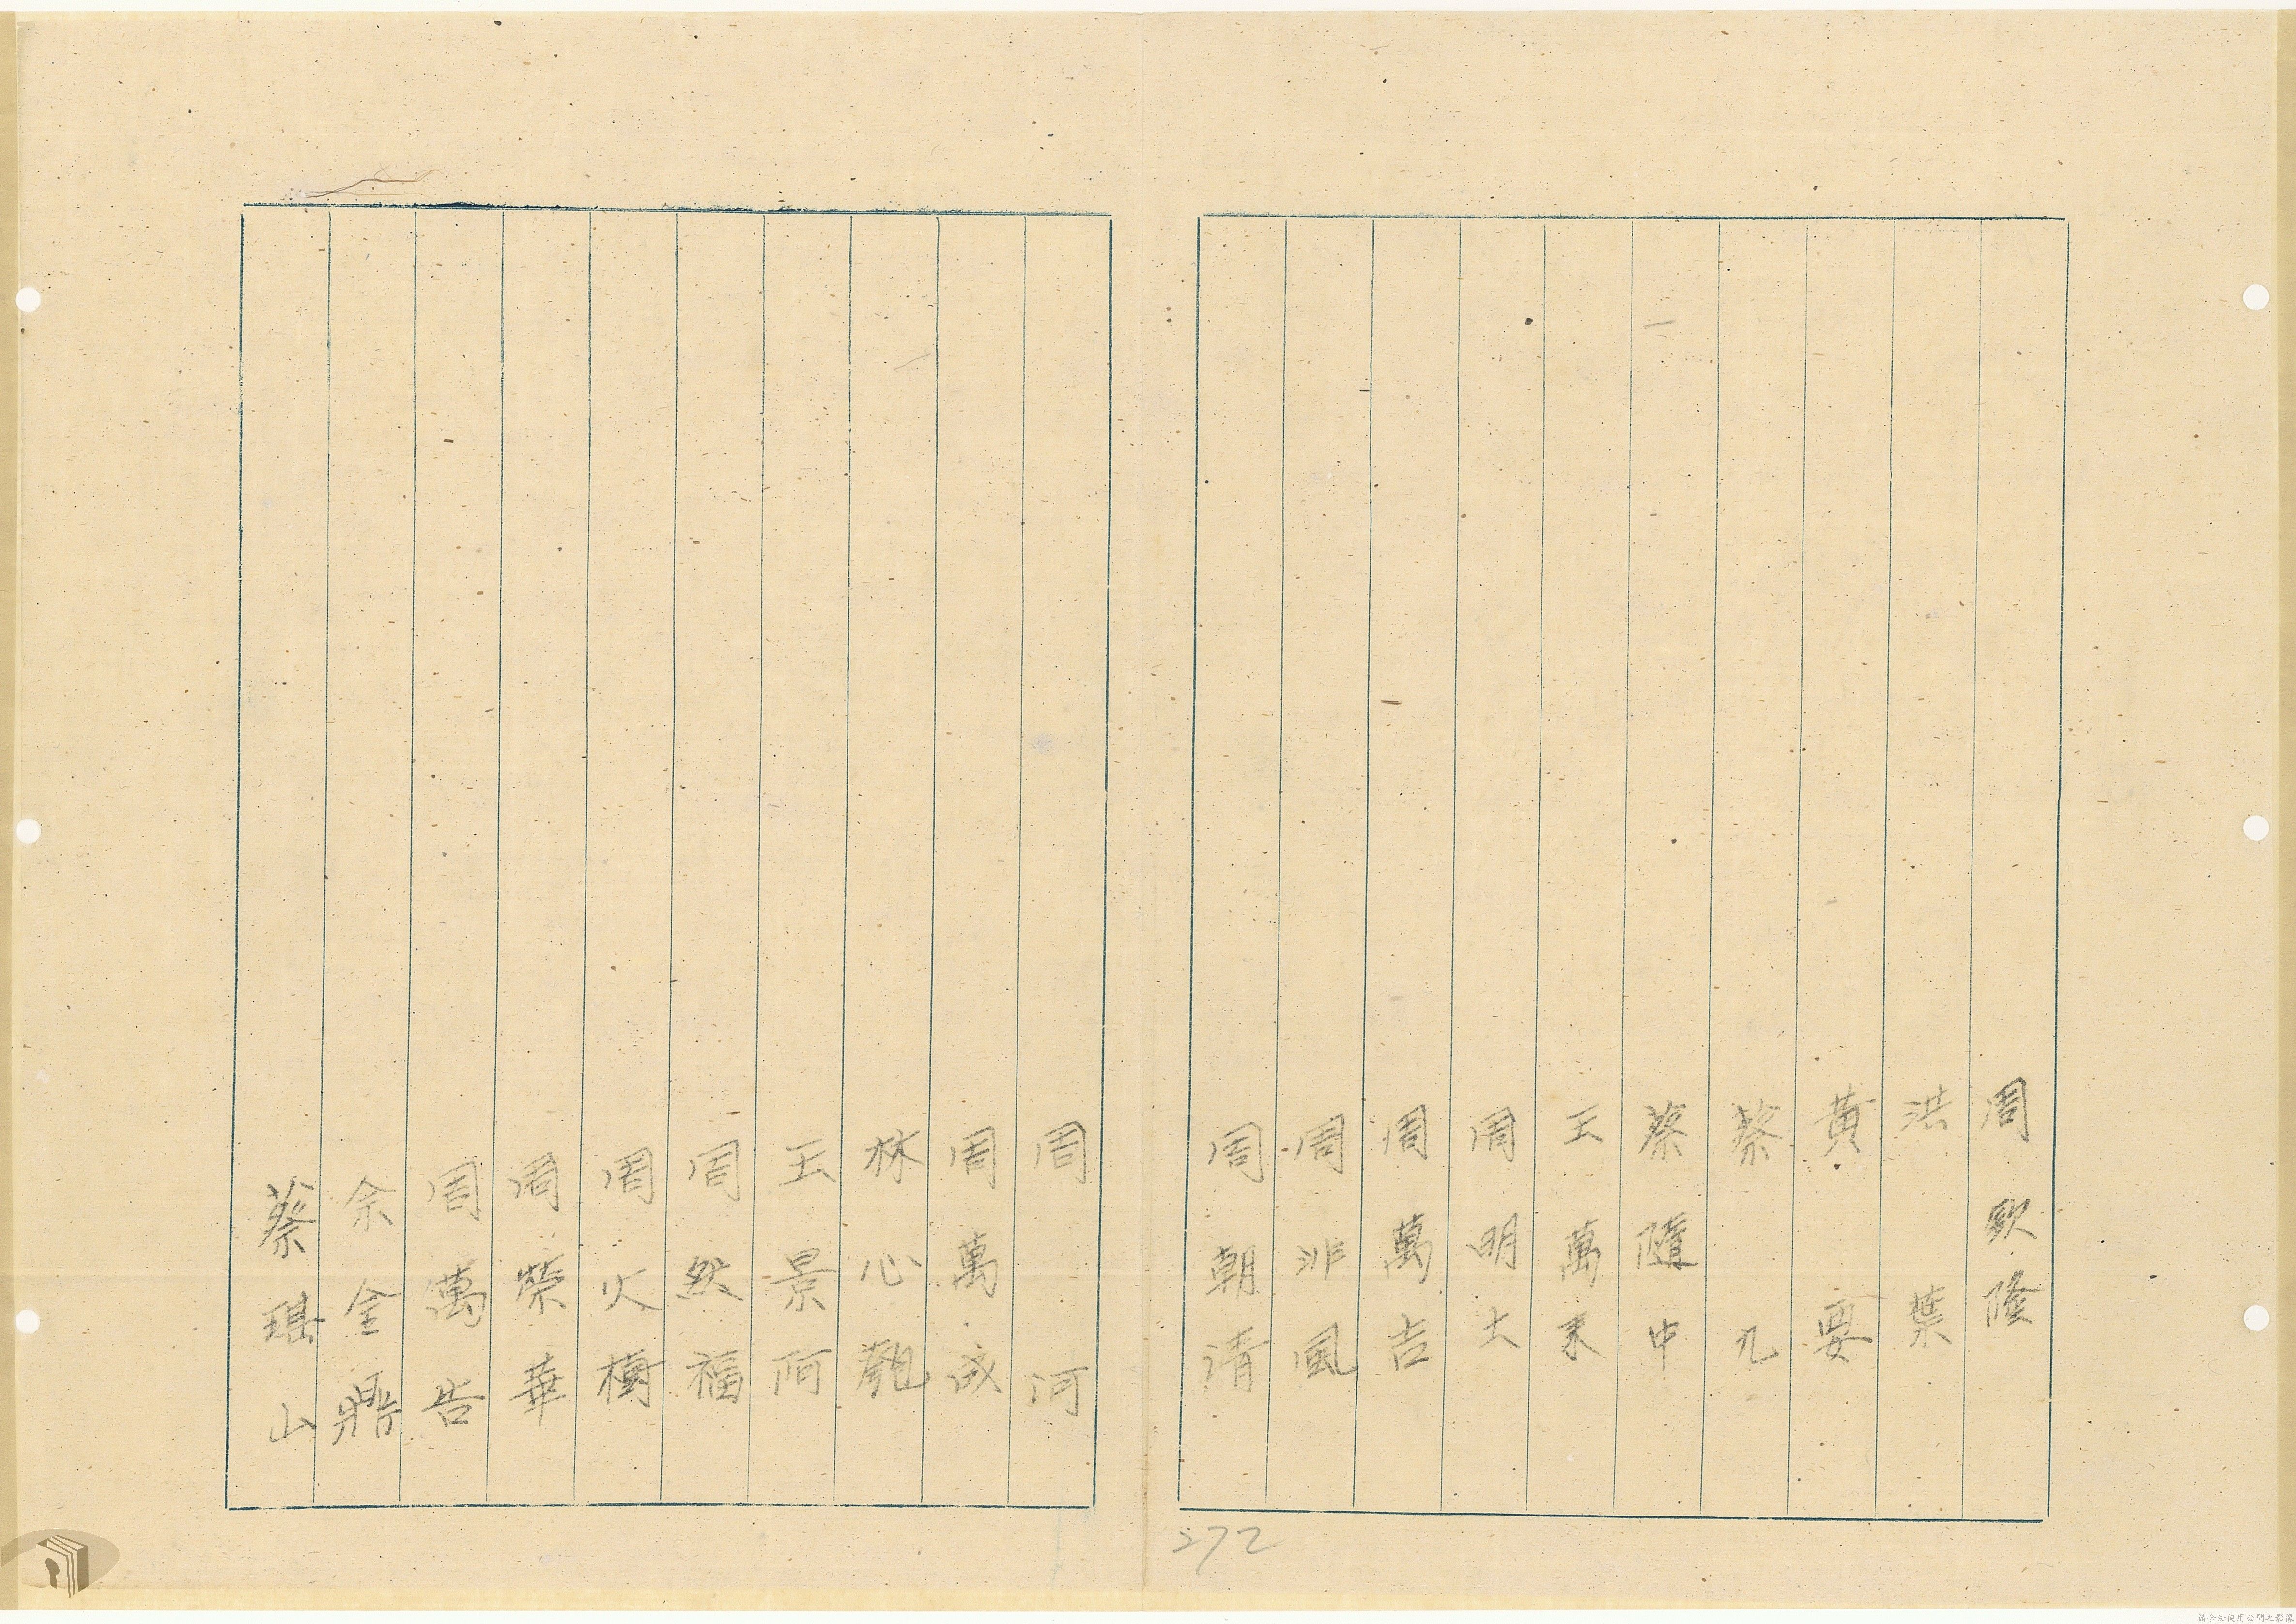 周欽隆
洪葉
黃要
蔡九
蔡隨中
王萬來
周明土
周萬吉
周非風
周朝清
周河
周萬成
林心匏
王景阿
周然福
周火樹
周榮華
周萬告
余全鼎
蔡瑤山
272
請合法使用公開之影像